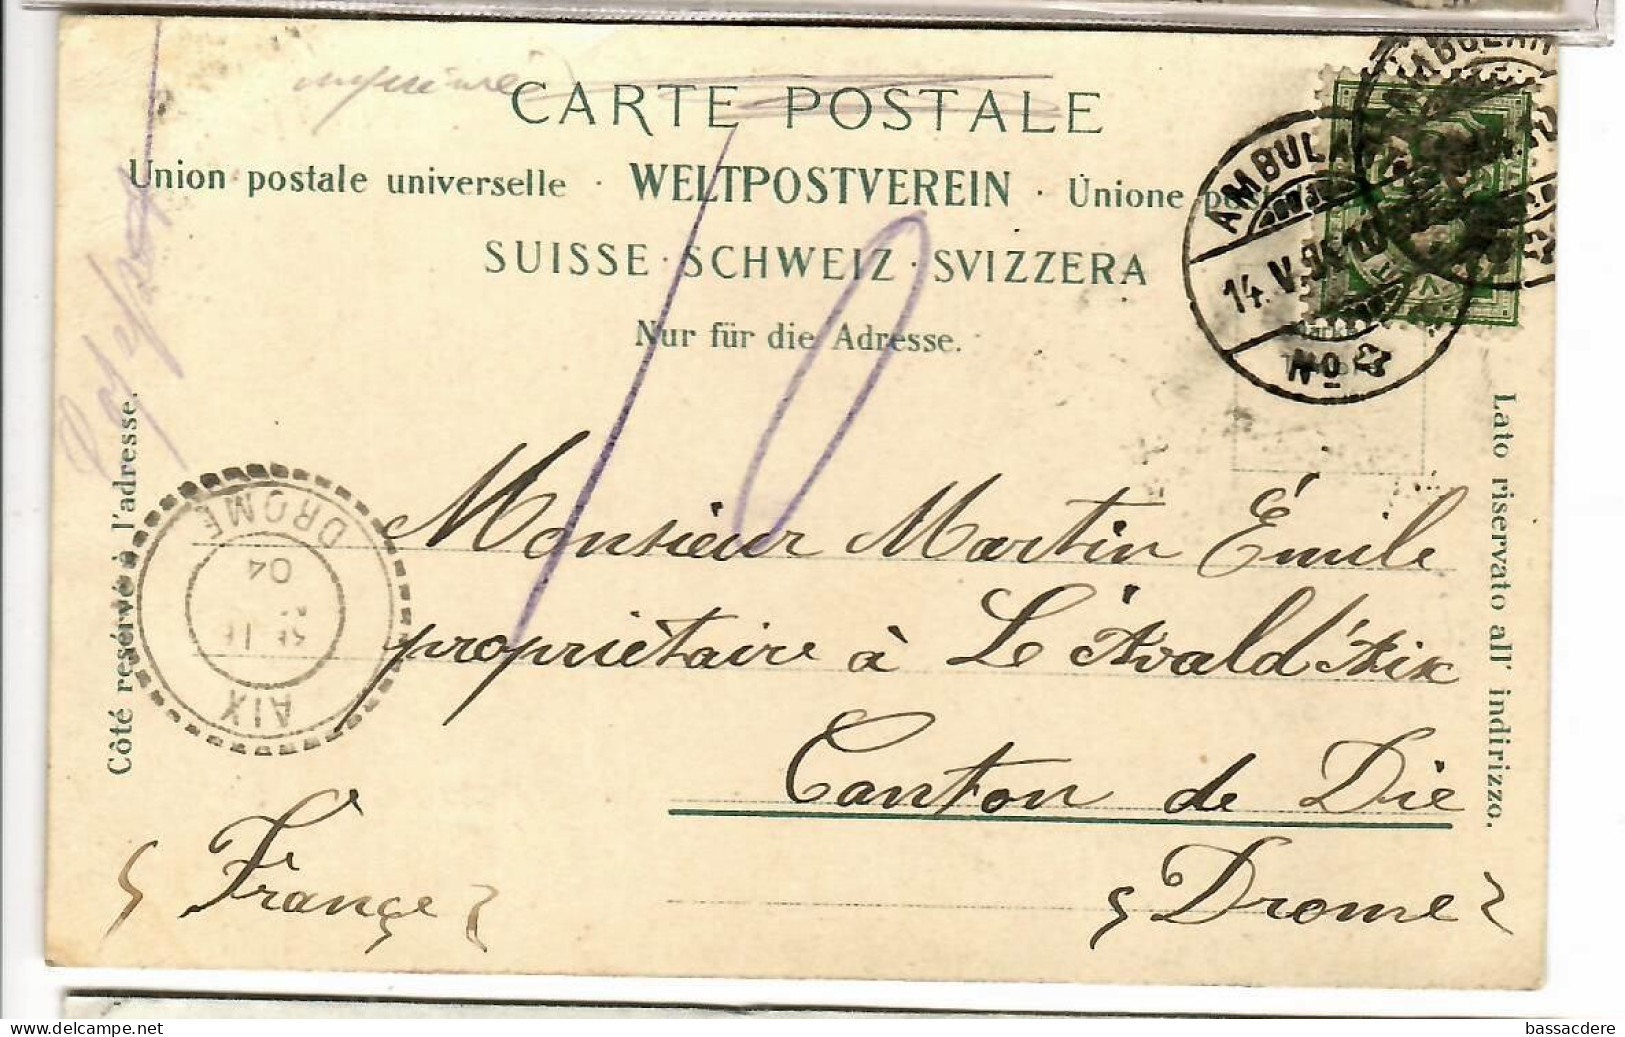 imprimé
CARTE POSTALE
Union postale universelle · WELTPOSTVEREIN · Unione po
SUISSE · SCHWEIZ · SVIZZERA
Nur für die Adresse.
AMBULAN
AMBULAN
14.V.
No
10
Côté reservé à l'adresse.
Lato riservato all' indirizzo.
DROME
04
16
AIX
Monsieur Martin Émile
propriétaire à L'Avald'Aix
Canton de Die
Drome
France
bassacdere